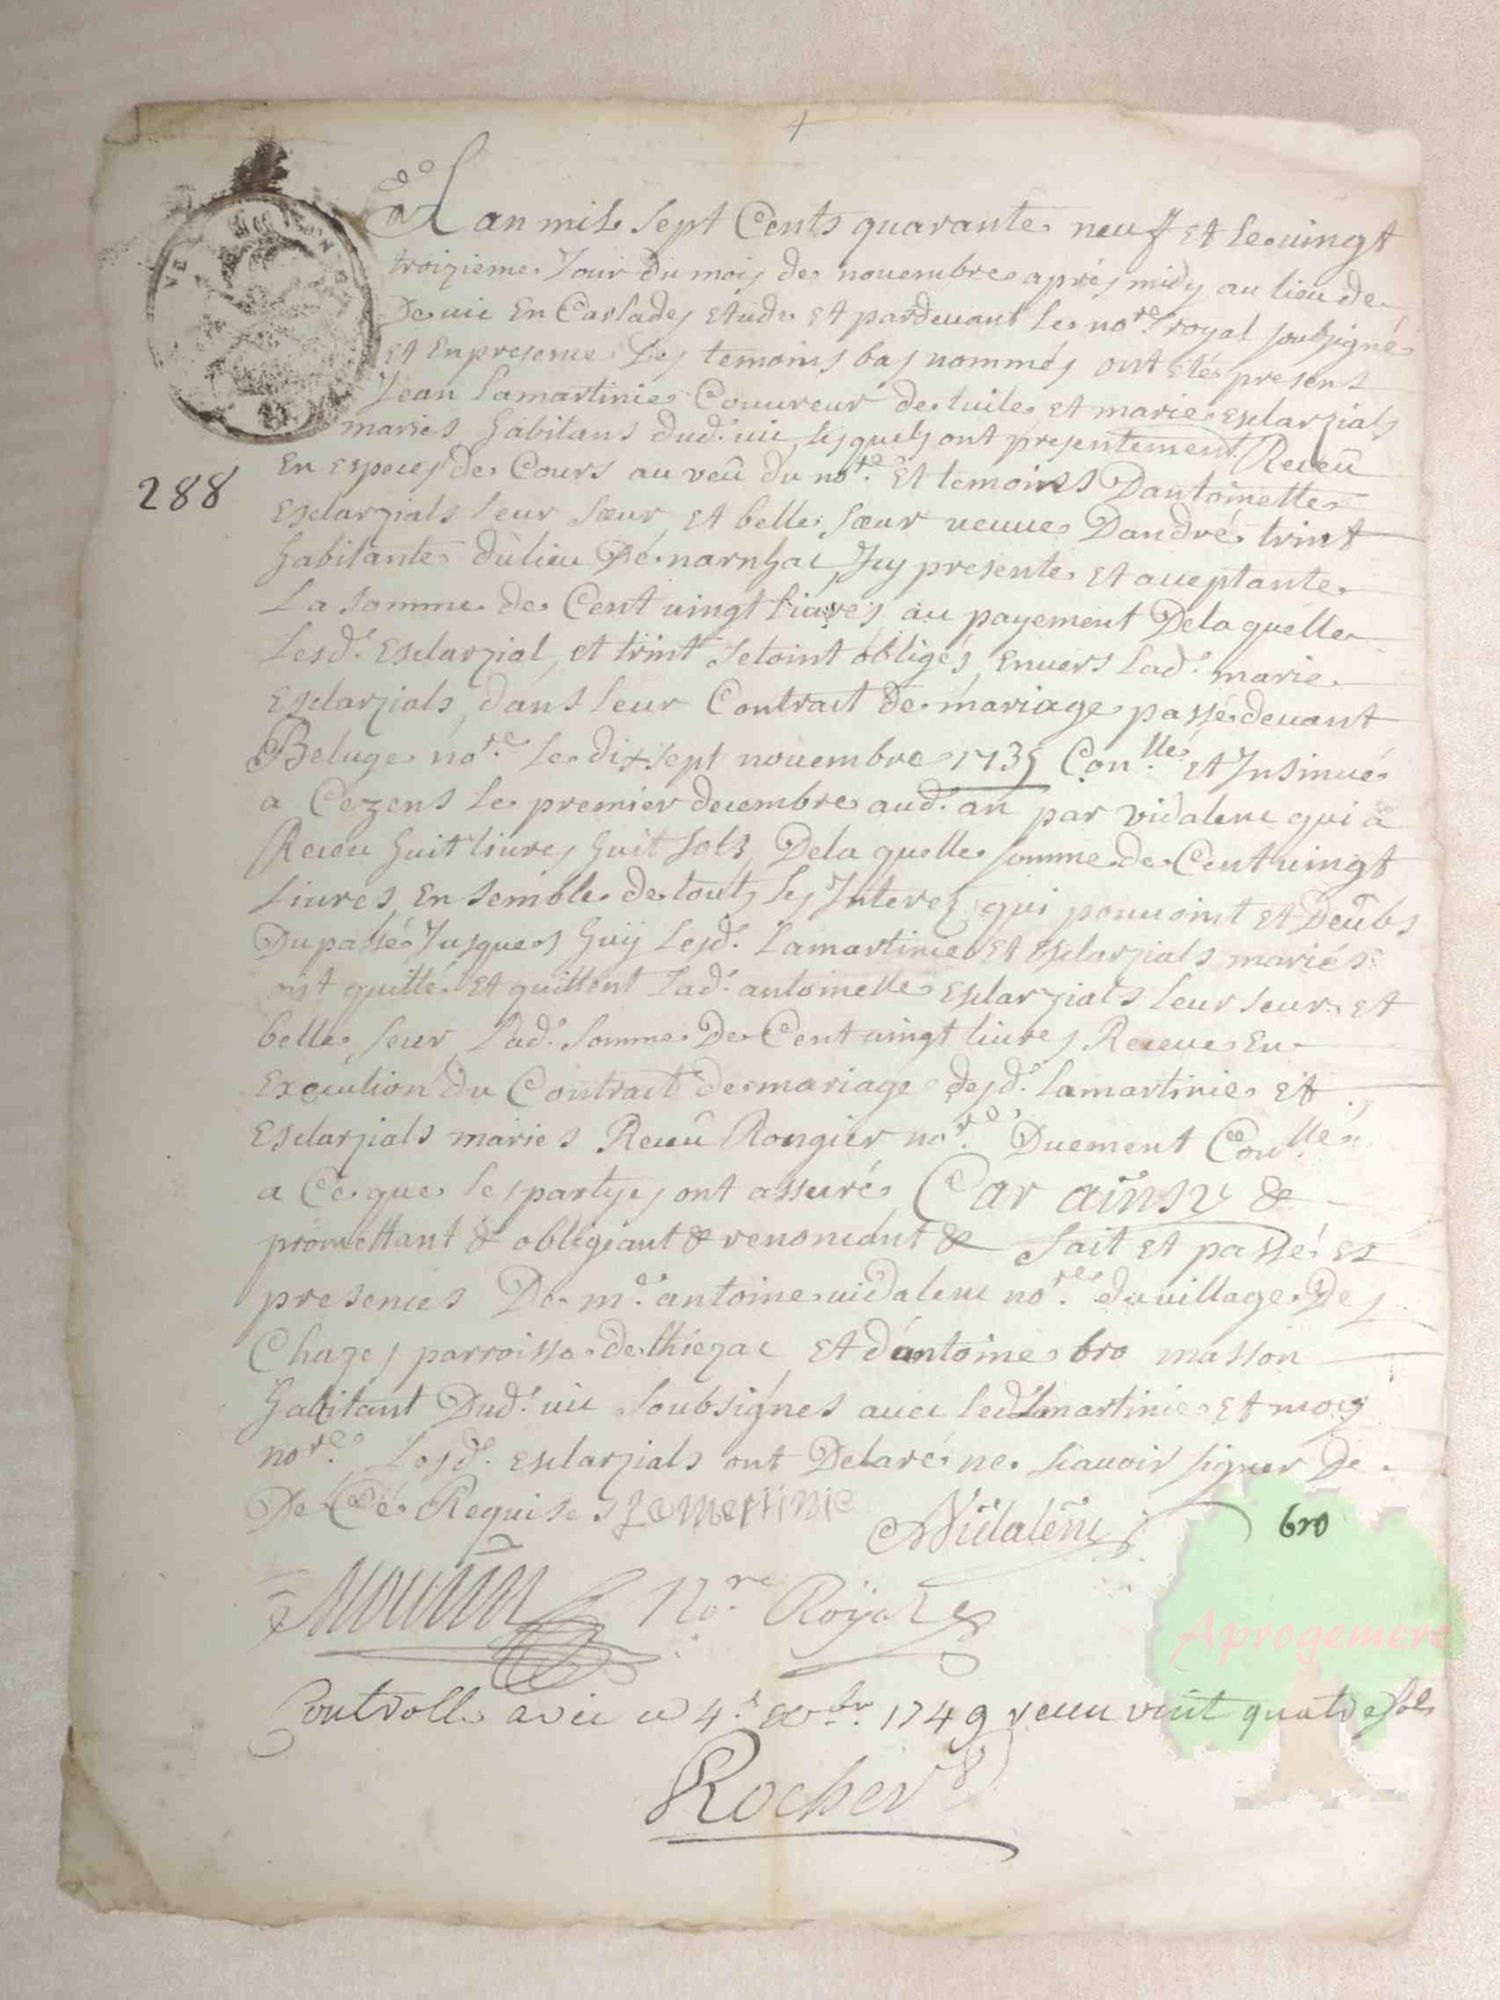 L'an mil sept Cents quarante neuf et le vingt
troizieme Jour du mois de nouembre aprés midy au lieu de
De uic En Carlades etude et pardeuant le no.re royal soubsigné
et En presence Des temoins bas nommés ont eté present
Jean Lamartinie Couureur de tuile et marie esclarzials
mariés habitans dud. uic lesquels ont presentement Receû
En especes de Cours au veû du no.re et temoins D'antoinette
esclarzials leur sœur et belle sœur veuue D'andré trint
habitante du lieu De narnhac Icy presente et acceptante
La somme de Cent uingt liures au payement De laquelle
Lesd. esclarzial et trint setoint obligés enuers lad. marie
esclarzials dans leur Contract de mariage passé deuant
Beluge no.re le dix sept nouembre 1735 Con.llé et Insinué
a Cezens le premier decembre aud. an par vidalenc qui a
Receu huit liures huit sols De la quelle somme de Cent uingt
liures En semble de touts les Interez qui pouuoint et Deûbs
Du passé Jusques huy Lesd. Lamartinie et esclarzials mariés
ont quitté et quittent Lad. antoinette esclarzials leur seur et
belle seur Lad. somme De Cent uingt liures Receue En
Execution du Contract de mariage desd. Lamartinie et
esclarzials maries Receû Rongier no.re Duement Con.llé
a Ce que les partyes ont assuré Car ainsy &
promettant & obligeant & renoncant & fait et passé ez
presences De m.e antoine uidalenc no.re du uillage Des
Chazes parroisse de thiezac et d'antoine bro masson
habitant Dud. uic soubsignes auec led. Lamartinie et moy
no.re Lesd. esclarzials ont Declaré ne scauoir signer de
De Ce Requises Lamartinie
Vidalenc
bro
No.re Royal
288
Controllé a vic ce 4.e xbre 1749 receu vint quatre sols
Rocher
Aprogemere